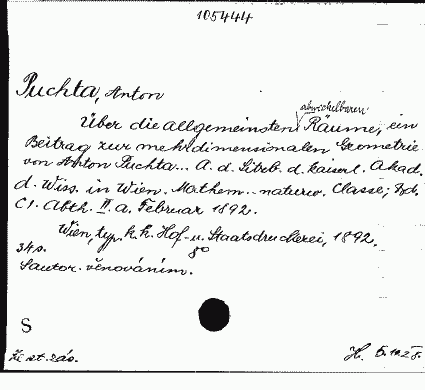 105444
Puchta, Anton
abwickelbaren
Über die allgemeinsten Räume, ein
Beitrag zur mehrdimensionalen Geometrie
von Anton Puchta... A. d. Sitzb. d. kaiserl. Akad.
d. Wiss. in Wien. Mathem.-naturw. Classe; Bd.
CI. Abth. II. a. Februar 1892.
Wien, typ. k. k. Hof- u. Staatsdruckerei, 1892.
34 s. 8°
S autor. věnováním.
S
Ze st. zás. H.